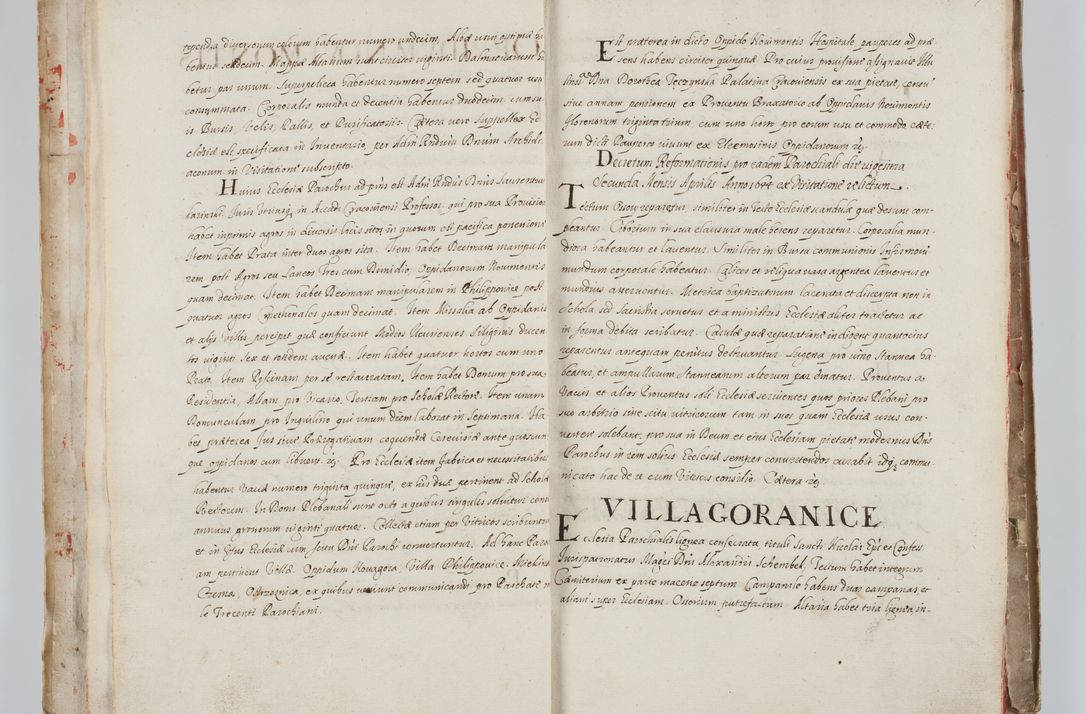 rependia diversorum colorum habentur numero undecim, Albæ unà
berunt sexdecim. Mappæ Altarium sunt circiter viginti. Dalmaticarum
betur par unum. Superpelicea habentur numero septem sed quatuor usu
consummata. Corporalia munda et decentia habentur Duodecim, cum su-
is Bursis, Velis, Pallis, et Purificatorijs. Cætera vero Suppellex Ec-
clesiæ est specificata in Inventario per Adm Rndum Dnum Archidi-
aconum in Visitatione subscripto.
Huius Ecclesiæ Parochus ad pñs est Adm Rndus Dnus Laurentius
Juris Utriusq in Accad: Cracoviensi Professor. qui pro sua Provisione
habet inprimis agros in diversis locis sitos in quorum est pacifica possessione
Item habet Prata inter duos agros sita. Item habet Decimam manipula-
rem post Agros seu Laneos Tres cum Dimidio, Oppidanorum Novimontis
quam decimat. Item habet Decimam manipularem in Philippovice post
quatuor agros Cmethonales quam decimat. Item Missalia ab Oppidanis
et alijs villis percipit quæ conficiunt Modios Ilcusienses Siliginis ducen-
tos viginti Sex et totidem avenæ. Item habet quatuor hortos cum uno
Prato. Item Piscinam per sè restauratam. Item habet Domum pro sua
Residentia, Aliam pro Vicario. Tertiam pro Scholæ Rectore. Item unam
Domunculam pro Inquilino qui unum diem laborat in Septimana. Ha-
bet præterea Jus sive Prærogativam coquendæ Cerevisiæ ante quoscun-
que oppidanos cum libuerit. Pro Ecclesiæ item fabrica et necessitatibus
habentur Vaccæ numero triginta quinque, ex his duæ pertinent ad Scholæ
Rectorem. In Domi Plebanali sunt octo a quibus singulis solvitur cens
annuus grossorum viginti quatuor. Collectæ etiam per Vitricos scribuntur
et in usus Ecclesiæ cum scitu Dni Parochi convertuntur. Ad hanc Paro
am pertinent Villæ. Oppidum Novagora, Villa Philippovice, Miekina
Czerna, Ostrzeznica, ex quibus veniunt communicandi pro Paschate
le Trecenti Parochiani.
Est præterea in dicto Oppido Novimontis Hospitale, pauperes ad præ-
sens habens circiter quinque. Pro cuius provisione assignavit Illu
Dna Dorothea Teczynska Palatina Cracoviensis ex sua pietate, censu
sive annuam pensionem ex Proventu Braxatorio ab Oppidanis Novimontis
florenorum triginta trium, cum uno horto pro eorum usu et commodo cæte-
rum dicti Pauperes vivunt ex Eleemosinis Oppidanorum
Decretum Reformationis pro eadem Parochiali die vigesima
Secunda. Mensis Aprilis Anno ex Visitatione relictum.
Tectum reparetur, similiter in Tecto Ecclesiæ scandulæ quæ desunt com-
peantur. Ciborium in sua clausura male hærens reparetur. Corporalia mun-
diora habeantur et laventur. Similiter in Bursa communionis Infirmorū
mundum corporale habeatur. Calices et reliqua vasa argentea laventur et
mundius asserventur. Metrica baptizatorum lacerata et discerpta non in
Schola sed Sacristia servetur et a ministris Ecclesiæ aliter tractetur ac
in forma debita scribatur. Casulæ quæ reparatione indigent quantocius
reparentur antequam penitus destruantur. Lagena pro vino Stannea ha-
beatur, et ampullarum Stannearum alterum par ematur. Proventus a
Vaccis et alios Proventus soli Ecclesiæ servientes quos priores Plebani pro
suo arbitrio sine scitu vitricorum tam in suos quam Ecclesiæ usus con-
vertere solebant, pro sua in Deum et eius Ecclesiam pietate modernus Dñs
Parochus in rem solius Ecclesiæ semper convertendos curabit idq commu-
nicato hac de re cum Vitricis consilio. Cætera
VILLA GORANICE
Ecclesia Parochialis lignea consecrata, tituli Sancti Nicolai Epi et Confess.
Jurispatronatus Magci Dni Alexandri Schembek, Tectum habet integrum
Cæmiterium ex parte macerie septum. Campanile habens duas campanas, et
aliam super Ecclesiam. Ossorium putrefactum. Altaria habet tria lignea, in-